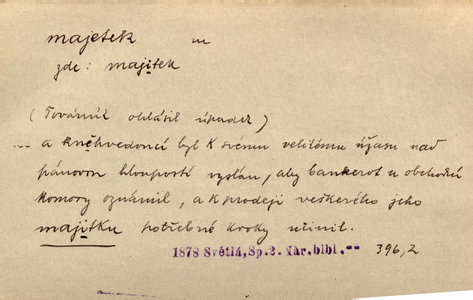 majetek m
zde: majitek
(Továrník ohlásil úpadek)
... a knihvedoucí byl k svému velikému úžasu nad
pánovou hloupostí vyslán, aby bankerot u obchodní
komory oznámil, a k prodeji veškerého jeho
majitku potřebné kroky učinil.
1878 Světlá, Sp.2. Nár.bibl. -- 396,2